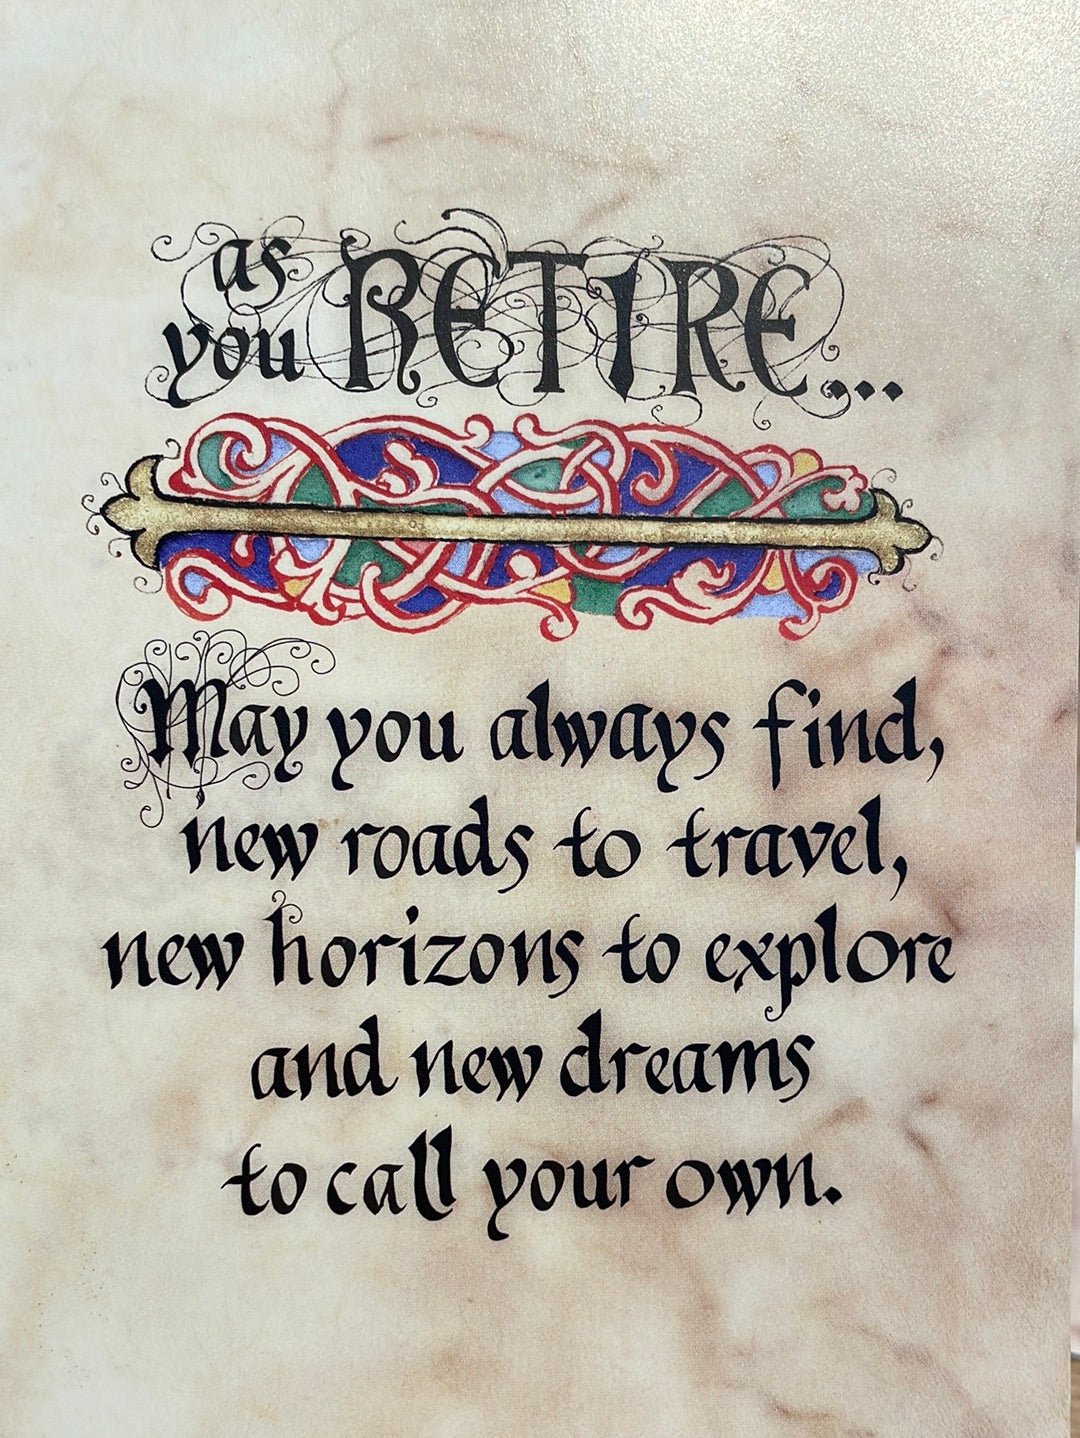 as
you RETIRE...
May you always find,
new roads to travel,
new horizons to explore
and new dreams
to call your own.